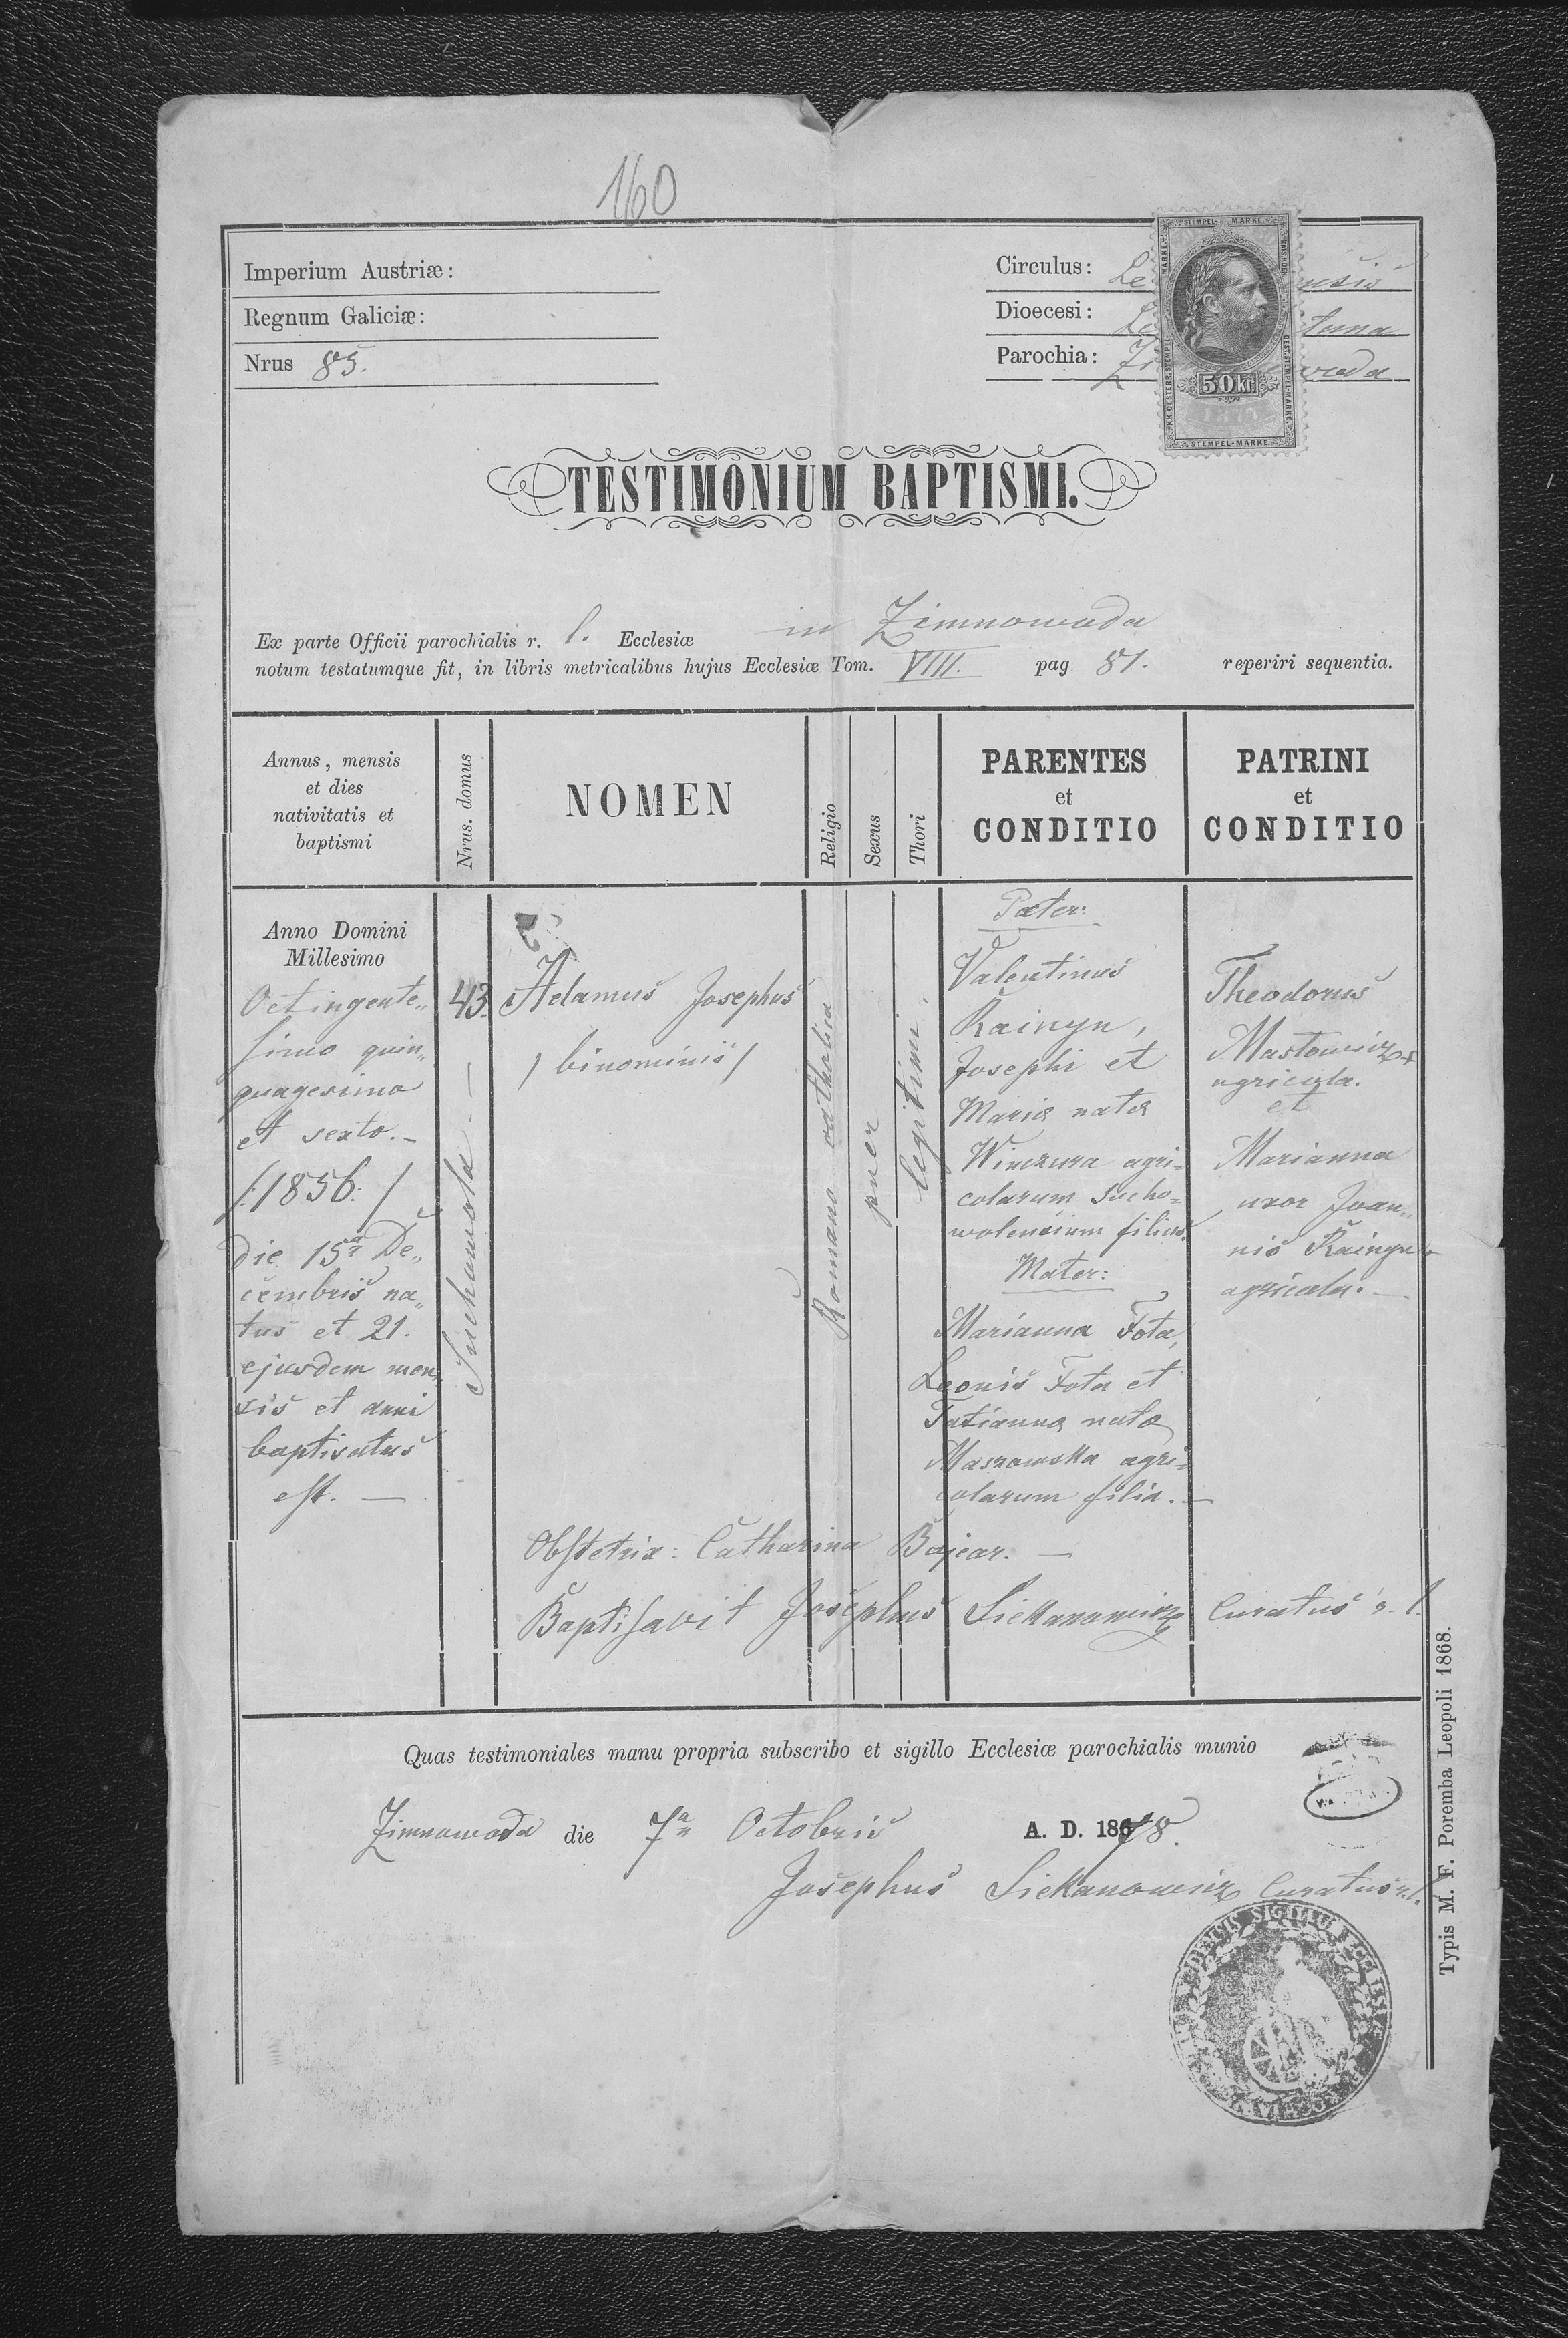 160
Imperium Austriæ:
Regnum Galiciæ:
Nrus 85.
Circulus:
Dioecesi:
Parochia:
STEMPEL-MARKE
50 kr
1877
STEMPEL-MARKE
TESTIMONIUM BAPTISMI.
Ex parte Officii parochialis r. l. Ecclesiæ in Zimnowoda
notum testatumque fit, in libris metricalibus hujus Ecclesiæ Tom. VIII. pag. 81. reperiri sequentia.
Annus, mensis
et dies
nativitatis et
baptismi
Nrus. domus
NOMEN
Religio
Sexus
Thori
PARENTES
et
CONDITIO
PATRINI
et
CONDITIO
Anno Domini
Millesimo
Octingente„
simo quin„
quagesimo
et sexto.-
/:1856:/
die 15ª De„
cembris na„
tus et 21.
ejusdem men„
sis et anni
baptisatus
est. —
43.
Suchawola. —
Adamus Josephus
/ binominis /
Romano catholica
puer
legitimi.
Pater:
Valentinus
Rainyn,
Josephi et
Mariæ natæ
Winczura agri=
colarum Sucho=
wolensium filius.
Mater:
Marianna Fota,
Leonis Fota et
Tatiannæ natæ
Maszowska agri=
colarum filia. —
Theodorus
agricola.
et
Marianna
uxor Joan„
nis Rainyn
agricola. —
Obstetrix: Catharina Bajcar. —
Baptisavit Josephus Siekanowicz Curatus r. l.
Quas testimoniales manu propria subscribo et sigillo Ecclesiæ parochialis munio
Zimnowoda die 7ª Octobris A. D. 1878.
Josephus Siekanowicz Curatus r. l.
SIGILLUM ECCLESIÆ
Typis M. F. Poremba Leopoli 1868.